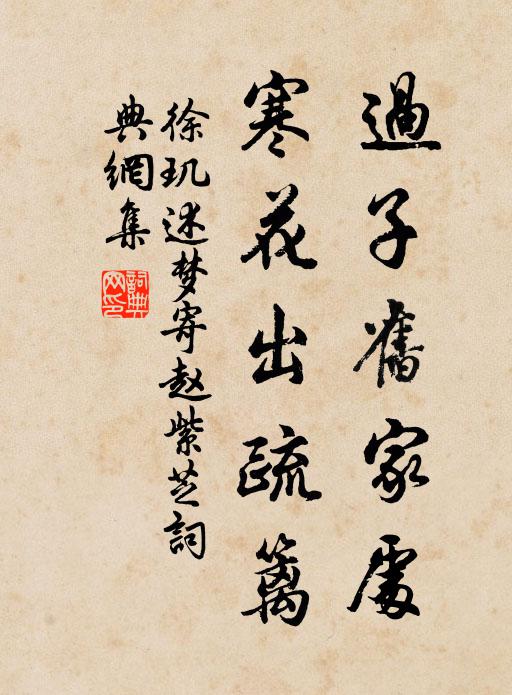 過子舊家處
寒花出疏籬
徐玑述梦寄赵紫芝詞
典網集
詞典网印